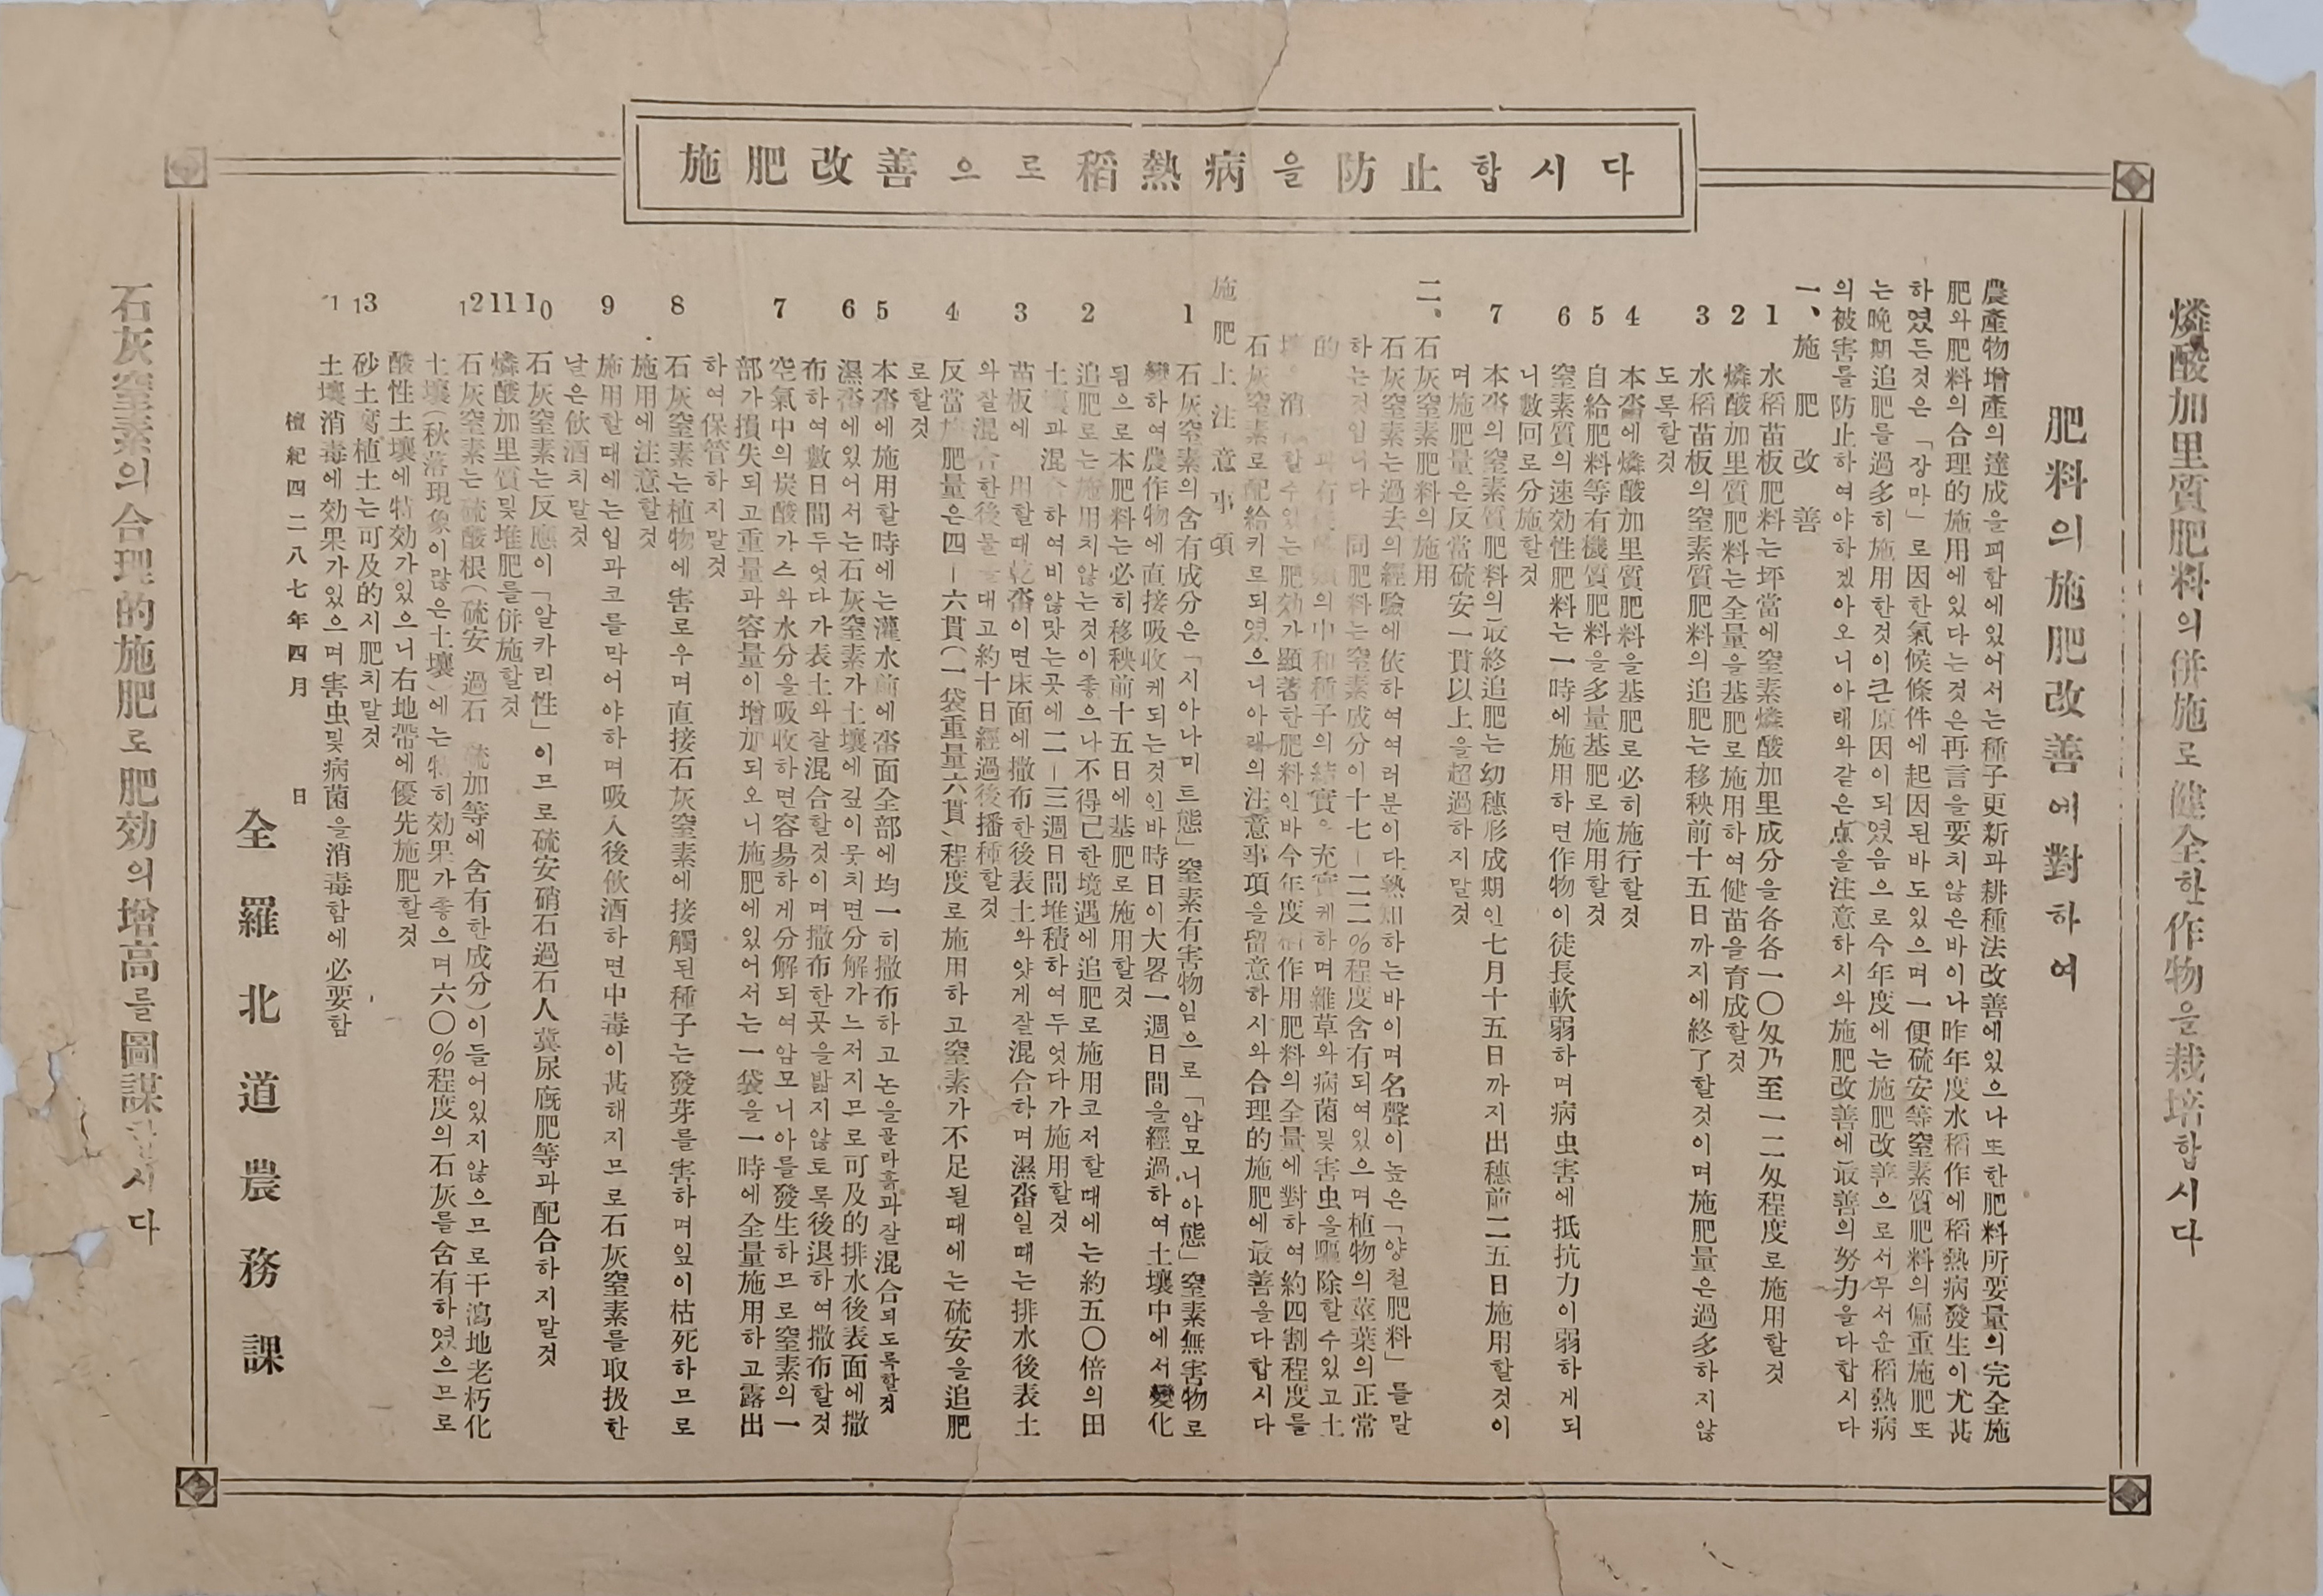 施肥改善으로稻熱病을防止합시다
燐酸加里質肥料의倂施로健全한作物을栽培합시다
肥料의施肥改善에對하여
農產物增產의達成을꾀함에있어서는種子更新과耕種法改善에있으나또한肥料所要量의完全施
肥와肥料의合理的施用에있다는것은再言을要치않은바이나昨年度水稻作에稻熱病發生이尤甚
하였든것은「장마」로因한氣候條件에起因된바도있으며一便硫安等窒素質肥料의偏重施肥또
는晩期追肥를過多히施用한것이큰原因이되였음으로今年度에는施肥改善으로서무서운稻熱病
의被害를防止하여야하겠아오니아래와같은点을注意하시와施肥改善에最善의努力을다합시다
一、施肥改善
1 水稻苗板肥料는坪當에窒素燐酸加里成分을各各一〇匁乃至一二匁程度로施用할것
2 燐酸加里質肥料는全量을基肥로施用하여健苗을育成할것
3 水稻苗板의窒素質肥料의追肥는移秧前十五日까지에終了할것이며施肥量은過多하지않
도록할것
4 本畓에燐酸加里質肥料을基肥로必히施行할것
5 自給肥料等有機質肥料을多量基肥로施用할것
6 窒素質의速効性肥料는一時에施用하면作物이徒長軟弱하며病虫害에抵抗力이弱하게되
니數回로分施할것
7 本畓의窒素質肥料의最終追肥는幼穗形成期인七月十五日까지出穗前二五日施用할것이
며施肥量은反當硫安一貫以上을超過하지말것
二、石灰窒素肥料의施用
石灰窒素는過去의經驗에依하여여러분이다熟知하는바이며名聲이높은「양철肥料」를말
하는것입니다 同肥料는窒素成分이十七-二二%程度含有되여있으며植物의莖葉의正常
的 의中和種子의結實을充實케하며雜草와病菌및害虫을驅除할수있고土
壤을消 할수있는肥効가顯著한肥料인바今年度稻作用肥料의全量에對하여約四割程度를
石灰窒素로配給키로되였으니아래의注意事項을留意하시와合理的施肥에最善을다합시다
施肥上注意事項
1 石灰窒素의含有成分은「시아나미트態」窒素有害物임으로「암모니아態」窒素無害物로
變하여農作物에直接吸收케되는것인바時日이大畧一週日間을經過하여土壤中에서變化
됨으로本肥料는必히移秧前十五日에基肥로施用할것
2 追肥로는施用치않는것이좋으나不得己한境遇에追肥로施用코저할때에는約五〇倍의田
土壤과混合하여비않맛는곳에二-三週日間堆積하여두엇다가施用할것
3 苗板에 用할때乾畓이면床面에撒布한後表土와얏게잘混合하며濕畓일때는排水後表土
와잘混合한後물을대고約十日經過後播種할것
4 反當施肥量은四-六貫(一袋重量六貫)程度로施用하고窒素가不足될때에는硫安을追肥
로할것
5 本畓에施用할時에는灌水前에畓面全部에均一히撒布하고논을골라흙과잘混合되도록할것
6 濕畓에있어서는石灰窒素가土壤에깊이뭇치면分解가느저지므로可及的排水後表面에撒
布하여數日間두엇다가表土와잘混合할것이며撒布한곳을밟지않토록後退하여撒布할것
7 空氣中의炭酸가스와水分을吸收하면容昜하게分解되여암모니아를發生하므로窒素의一
部가損失되고重量과容量이增加되오니施肥에있어서는一袋을一時에全量施用하고露出
하여保管하지말것
8 石灰窒素는植物에害로우며直接石灰窒素에接觸된種子는發芽를害하며잎이枯死하므로
施用에注意할것
9 施用할때에는입과코를막어야하며吸入後飮酒하면中毒이甚해지므로石灰窒素를取扱한
날은飮酒치말것
10 石灰窒素는反應이「알카리性」이므로硫安硝石過石人糞尿廐肥等과配合하지말것
11 燐酸加里質및堆肥를倂施할것
12 石灰窒素는硫酸根(硫安 過石 硫加等에含有한成分)이들어있지않으므로干潟地老朽化
土壤(秋落現象이많은土壤)에는特히効果가좋으며六〇%程度의石灰를含有하였으므로
酸性土壤에特効가있으니右地帶에優先施肥할것
13 砂土腐植土는可及的시肥치말것
1 土壤消毒에効果가있으며害虫및病菌을消毒함에必要함
檀紀四二八七年四月 日
全羅北道農務課
石灰窒素의合理的施肥로肥効의增高를圖謀합시다